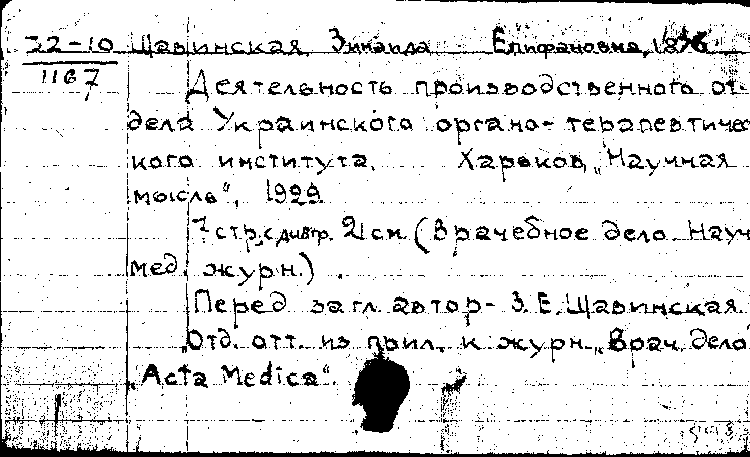 32-10 Щавинская, Зинаида Епифановна, 1876
1167
Деятельность производственного от-
дела Украинского органо-терапевтичес
кого института. Харьков, „Научная
мысль“, 1929
7 стр. с диагр. 21 см. (Врачебное дело. Науч
мед. журн.).
Перед загл. автор - З. Е. Щавинская.
Отд. отт. из прил. к журн. „Врач. дело
„Acta Medica“.